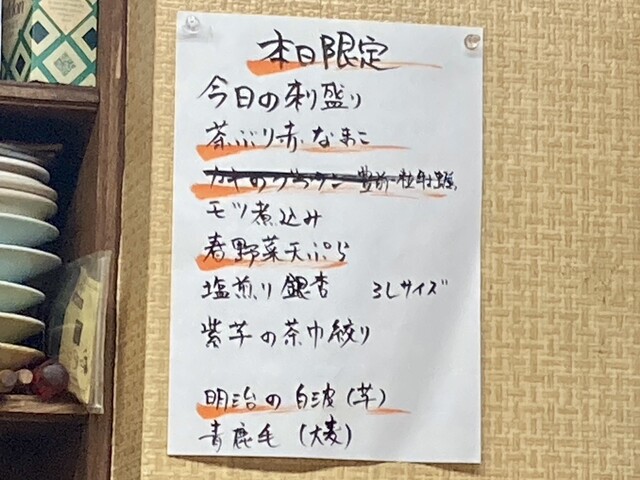 本日限定
今日の刺盛り
茶ぶり赤なまこ
カキのグラタン 豊前
モツ煮込み
春野菜天ぷら
塩煎り銀杏 3Lサイズ
紫芋の茶巾絞り
明治の白波（芋）
青鹿毛（大麦）